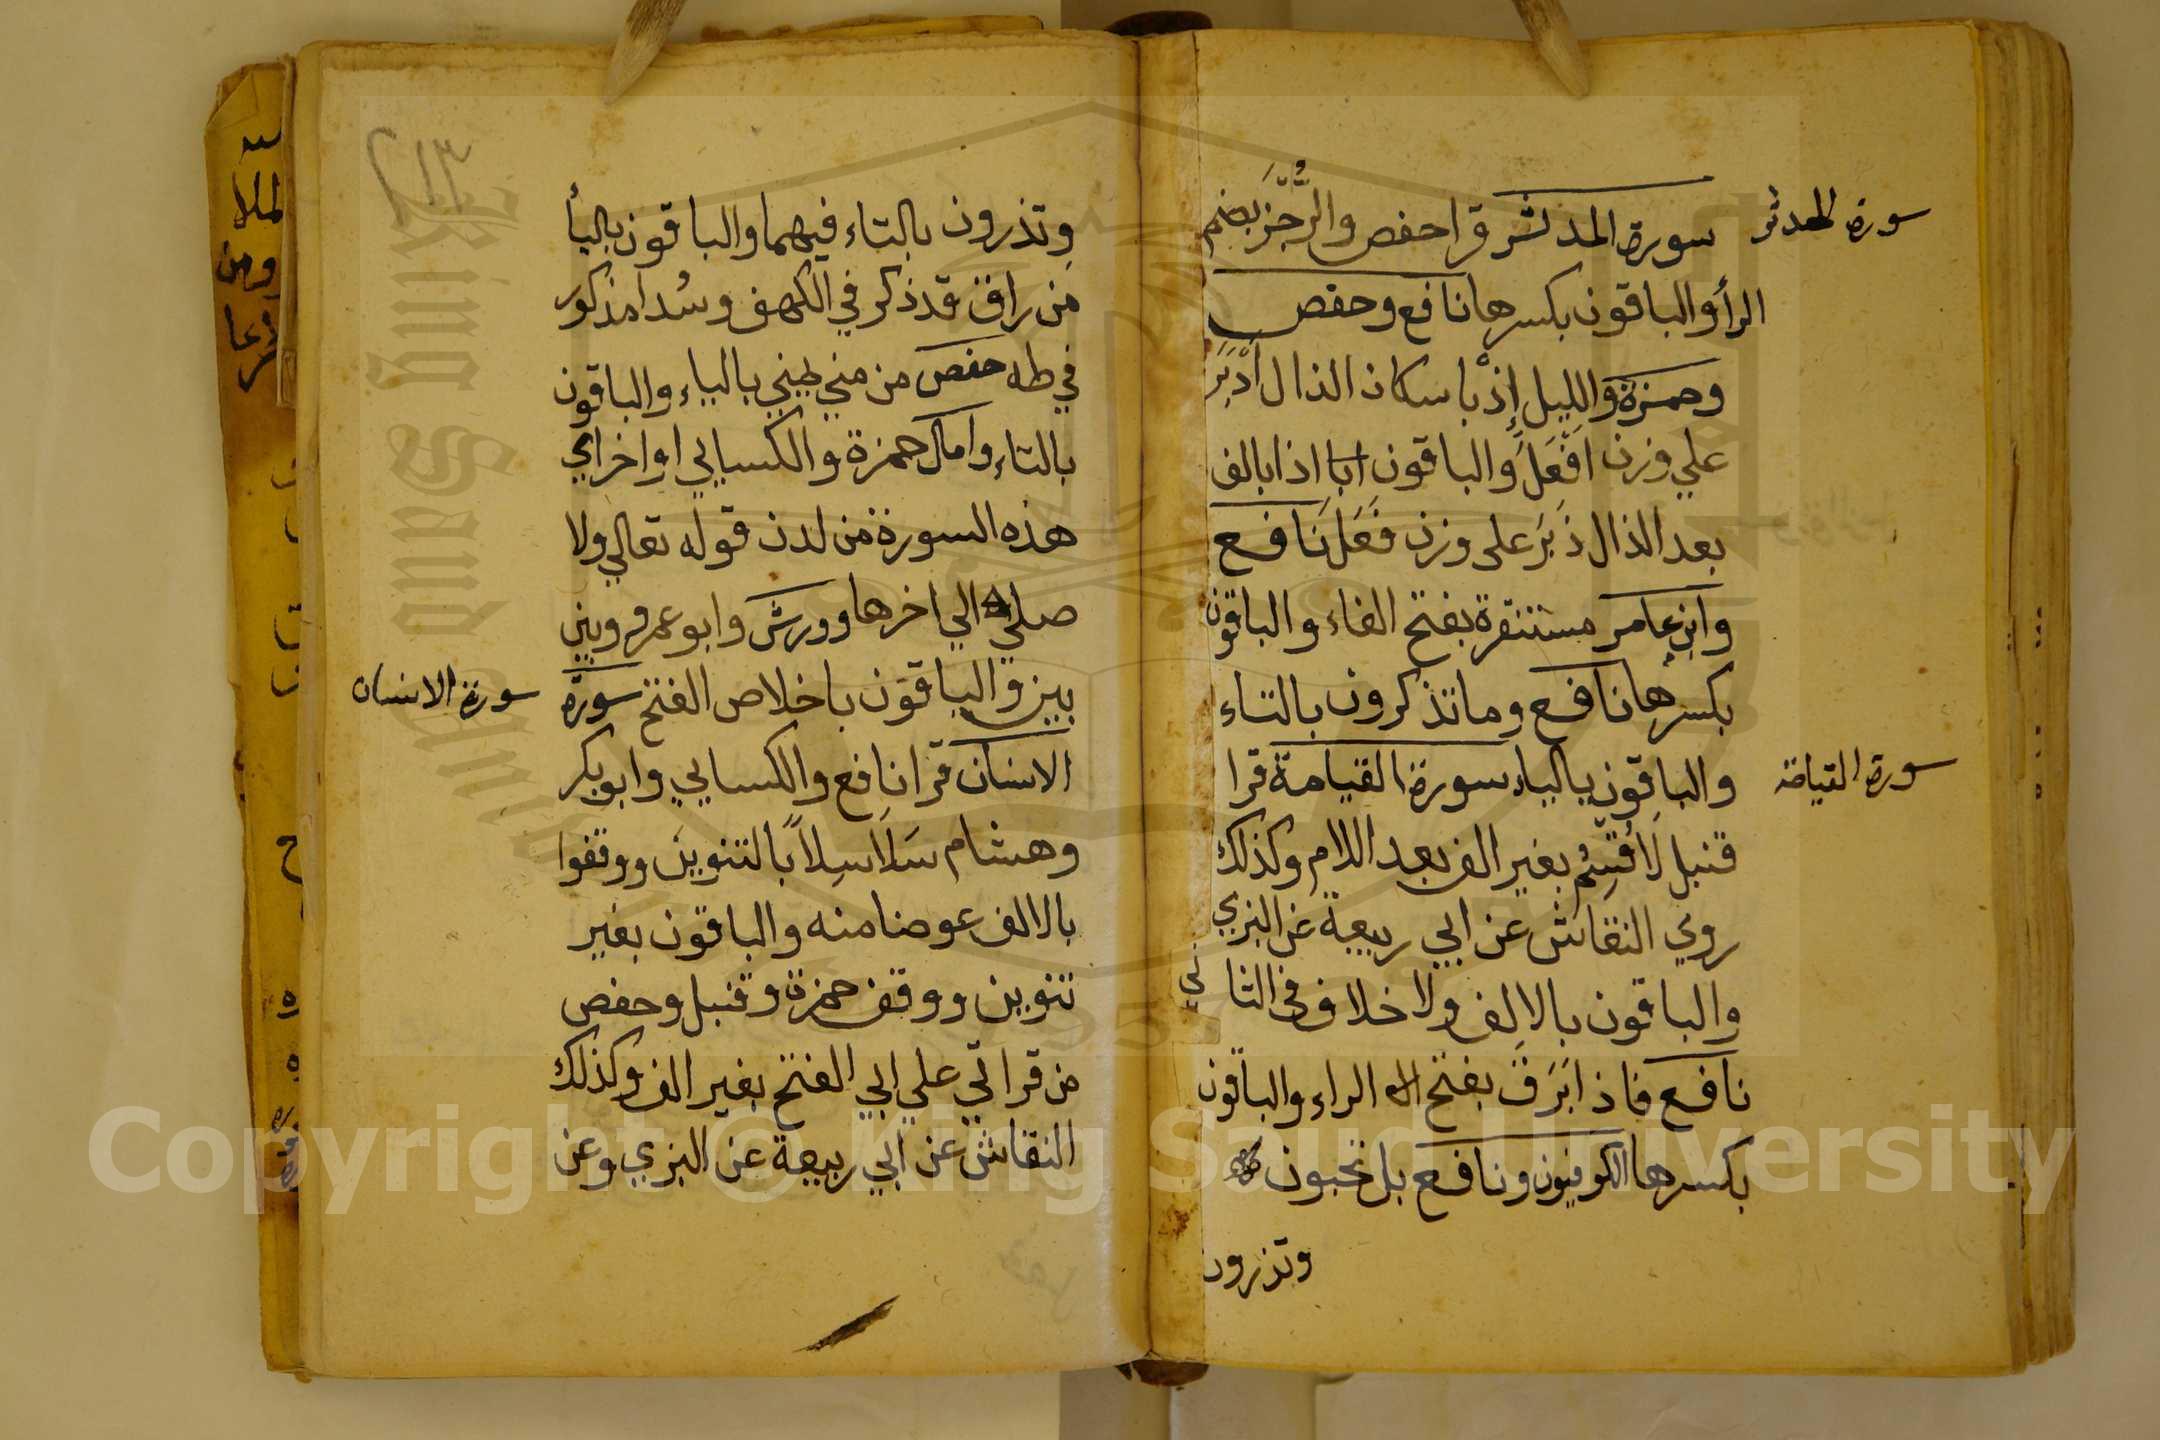 سورة المدثر
سورة المدثر قرا حفص والرُّجزَ بضم
الرأ والباقون بكسرها نافع وحفص
وحمزة والليل إذْ باسكان الذال اَدْبَرَ
علي وزن اَفْعَلَ والباقون اذا بالف
بعد الذال دَبَرَ على وزن فَعَلَ نافع
وابن عامر مستنفرة بفتح الفاء والباقون
بكسرها نافع وما تذكرون بالتاء
والباقون بالياء سورة القيامة قرا
سورة القيامة
قنبل لَاُقْسِمُ بغير الف بعد اللام وكذلك
روي النقاش عن ابي ربيعة عن البزي
والباقون بالالف ولا خلاف في الثاني
نافع فاذا بَرَقَ بفتح الراء والباقون
بكسرها الكوفيون ونافع بل تحبون
وتذرون
وتذرون بالتاء فيهما والباقون باليأ
من راق قد ذكر في الكهف وسُدا مذكور
في طه حفص من مني يمني بالياء والباقون
بالتاء وامال حمزة والكسايي اواخر اي
هذه السورة من لدن قوله تعالي ولا
صلي الي اخرها وورش وابو عمرو بين
بين والباقون باخلاص الفتح سورة
سورة الانسان
الانسان قرا نافع والكسايي وابو بكر
وهشام سَلَاسِلاً بالتنوين ووقفوا
بالالف عوضا منه والباقون بغير
تنوين ووقف حمزة وقنبل وحفص
من قراتي علي ابي الفتح بغير الف وكذلك
النقاش عن ابي ربيعة عن البزي وعن
Copyright © King Saud University
King Saud University